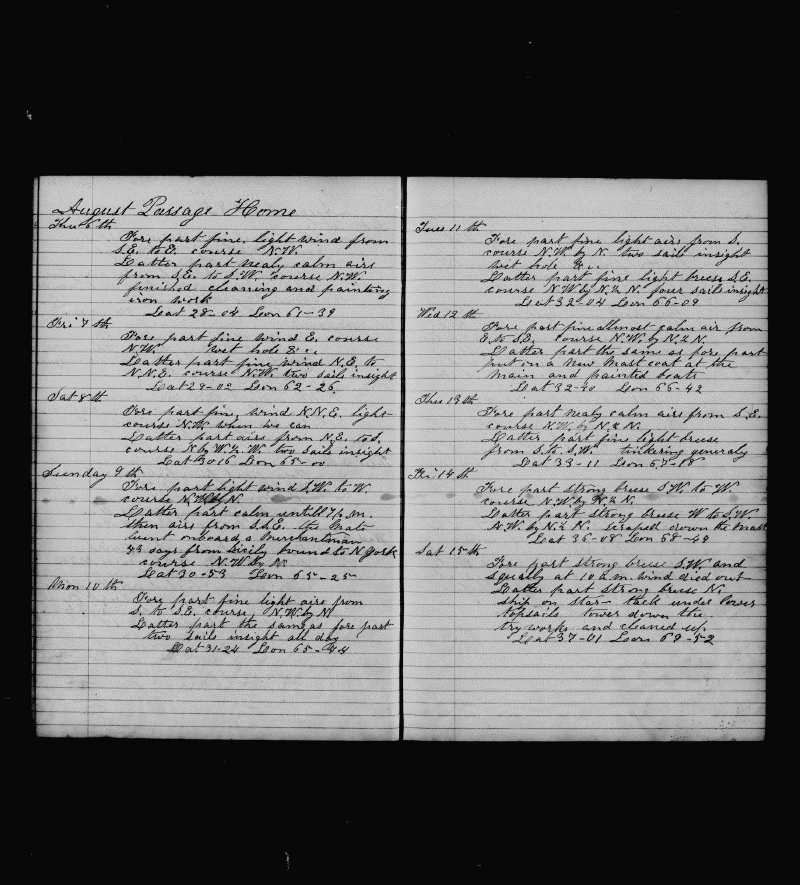 August Passage Home
Thu 6th
Fore part fine, light wind from
S.E. to E. course N.W.
Latter part nealy calm airs
from S.E. to S.W. course N.W.
finished cleaning and painting
iron work
Lat 28-04 Lon 61-39
Fri 7th
Fore part fine wind E. course
N.W. hole &c.
Latter part fine wind N.E. to
N.N.E. course N.W. two sails insight
Lat 29-02 Lon 62-26
Sat 8th
Fore part fine, wind N.N.E. light
course N.W. when we can
Latter part airs from N.E. to S.
course N by W.½ W. two sails insight
Lat 30 16 Lon 65-00
Sunday 9th
Fore part light wind S.W. to W.
course N.W by N.
Latter part calm untill 7 P.M.
then airs from S.S.E. the Mate
went onboard a Merchantman
43 days from Sicily bound to N York
course N.W by N.
Lat 30-53 Lon 65-25
Mon 10th
Fore part fine light airs from
S. to S.E. course N.W. by N
Latter part the same as fore part
two sails insight all day
Lat 31-24 Lon 65-44
Tues 11th
Fore part fine light airs from S.
course N.W. by N. two sails insight
wet hole &c.
Latter part fine light breese S.E.
course N.W by N.½ N. four sails insight
Lat 32-04 Lon 66-09
Wed 12th
Fore part fine allmost calm air from
E. to S.E. course N.W. by N.½ N.
Latter part the same as fore part
put on a New Mast coat at the
Main and painted boats
Lat 32-30 Lon 66-42
Thu 13th
Fore part nealy calm airs from S.E.
course N.W. by N.½ N.
Latter part fine light breese
from S. to S.W. tinkering generaly
Lat 33-11 Lon 67-18
Fri 14th
Fore part strong breese S.W. to W.
course N.W by N.½ N.
Latter part strong breese W to S.W.
N.W. by N.½ N. scraped down the Mast
Lat 36-08 Lon 68-49
Sat 15th
Fore part strong breese S.W. and
squaly at 10 a.m. wind died out
Latter part strong breese N.
ship on star- tack under lower
topsails tower down the
try works and cleaned up.
Lat 37-01 Lon 69-52